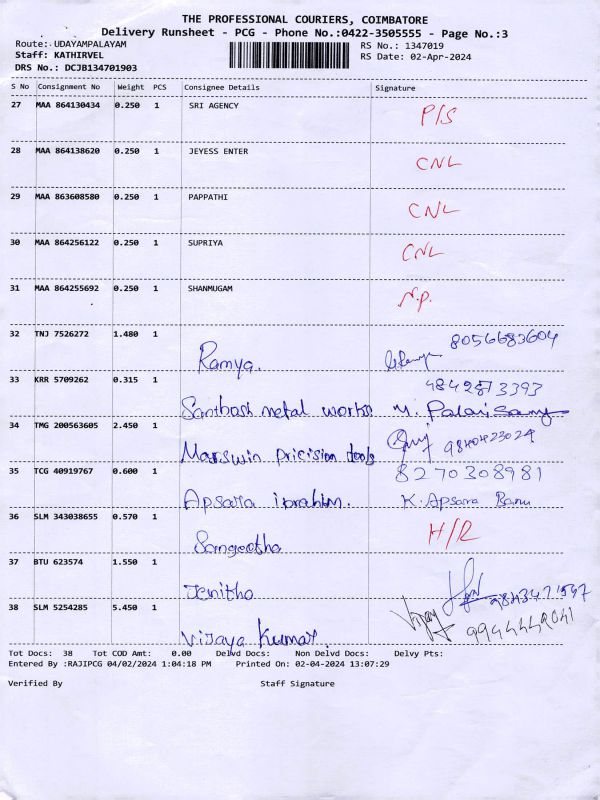 THE PROFESSIONAL COURIERS, COIMBATORE
Delivery Runsheet - PCG - Phone No.:0422-3505555 - Page No.:3
Route: UDAYAMPALAYAM RS No.: 1347019
Staff: KATHIRVEL RS Date: 02-Apr-2024
DRS No.: DCJB134701903
S No Consignment No Weight PCS Consignee Details Signature
27 MAA 864130434 0.250 1 SRI AGENCY P/S
28 MAA 864138620 0.250 1 JEYESS ENTER CNL
29 MAA 863608580 0.250 1 PAPPATHI CNL
30 MAA 864256122 0.250 1 SUPRIYA CNL
31 MAA 864255692 0.250 1 SHANMUGAM N.P.
32 TNJ 7526272 1.480 1 Ramya. 8056683604
33 KRR 5709262 0.315 1 Santhosh metal works M. Palanisamy
34 TMG 200563605 2.450 1 Marswin pricision tools
35 TCG 40919767 0.600 1 8270308981
Apsara ibrahim. K. Apsara Banu
36 SLM 343038655 0.570 1 Sangeetha H/R
37 BTU 623574 1.550 1 Jenitha
38 SLM 5254285 5.450 1 Vijaya Kumar. Vijay
Tot Docs: 38 Tot COD Amt: 0.00 Delvd Docs: Non Delvd Docs: Delvy Pts:
Entered By :RAJIPCG 04/02/2024 1:04:18 PM Printed On: 02-04-2024 13:07:29
Verified By Staff Signature